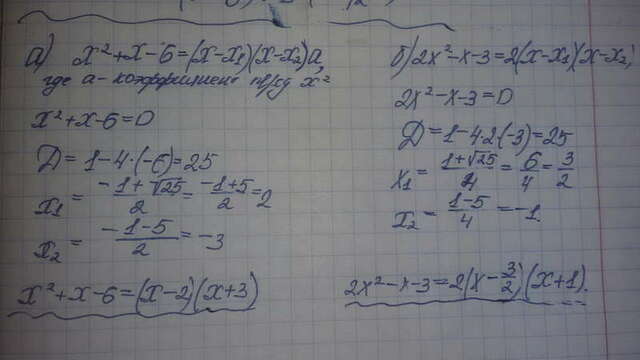 а) x²+x-6=(x-x₁)(x-x₂)a,
где a-коэффициент перед x²
x²+x-6=0
D=1-4·(-6)=25
x₁ = (-1+√25)/2 = (-1+5)/2 = 2
x₂ = (-1-5)/2 = -3
x²+x-6=(x-2)(x+3)
б) 2x²-x-3=2(x-x₁)(x-x₂)
2x²-x-3=0
D=1-4·2(-3)=25
x₁ = (1+√25)/4 = 6/4 = 3/2
x₂ = (1-5)/4 = -1.
2x²-x-3=2(x-3/2)(x+1).